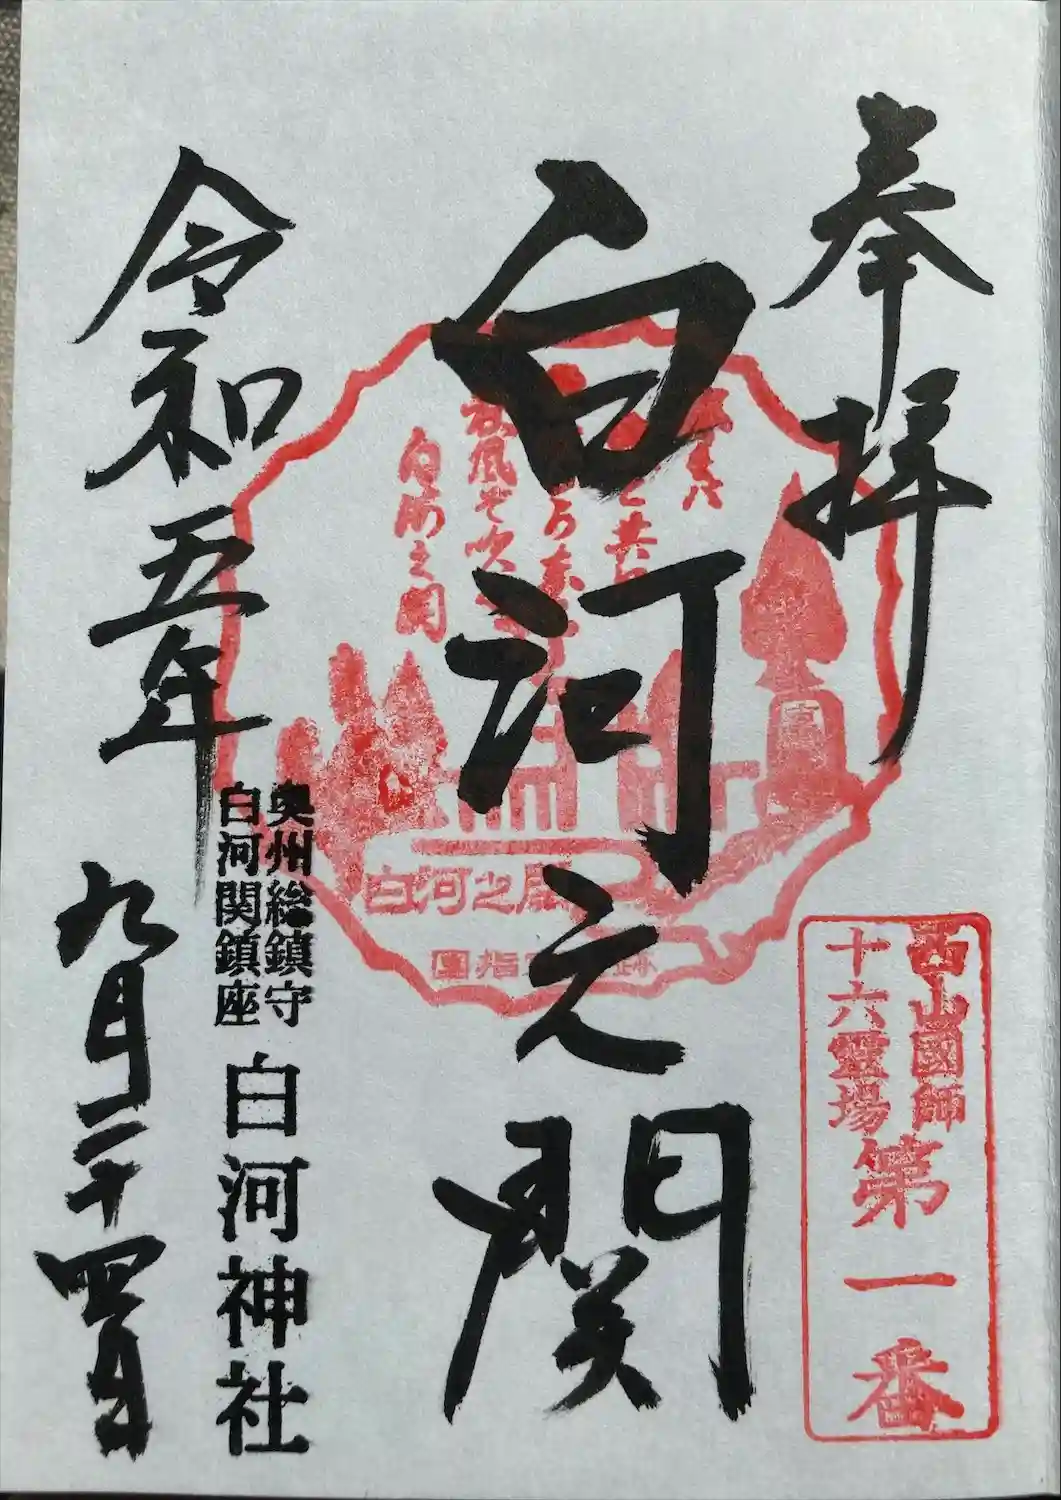 奉拝
西山國師
十六霊場
第一番
白河之関
秋風ぞ吹く
白河之関
白河之関
奥州総鎮守
白河関鎮座
白河神社
令和五年
九月二十四日